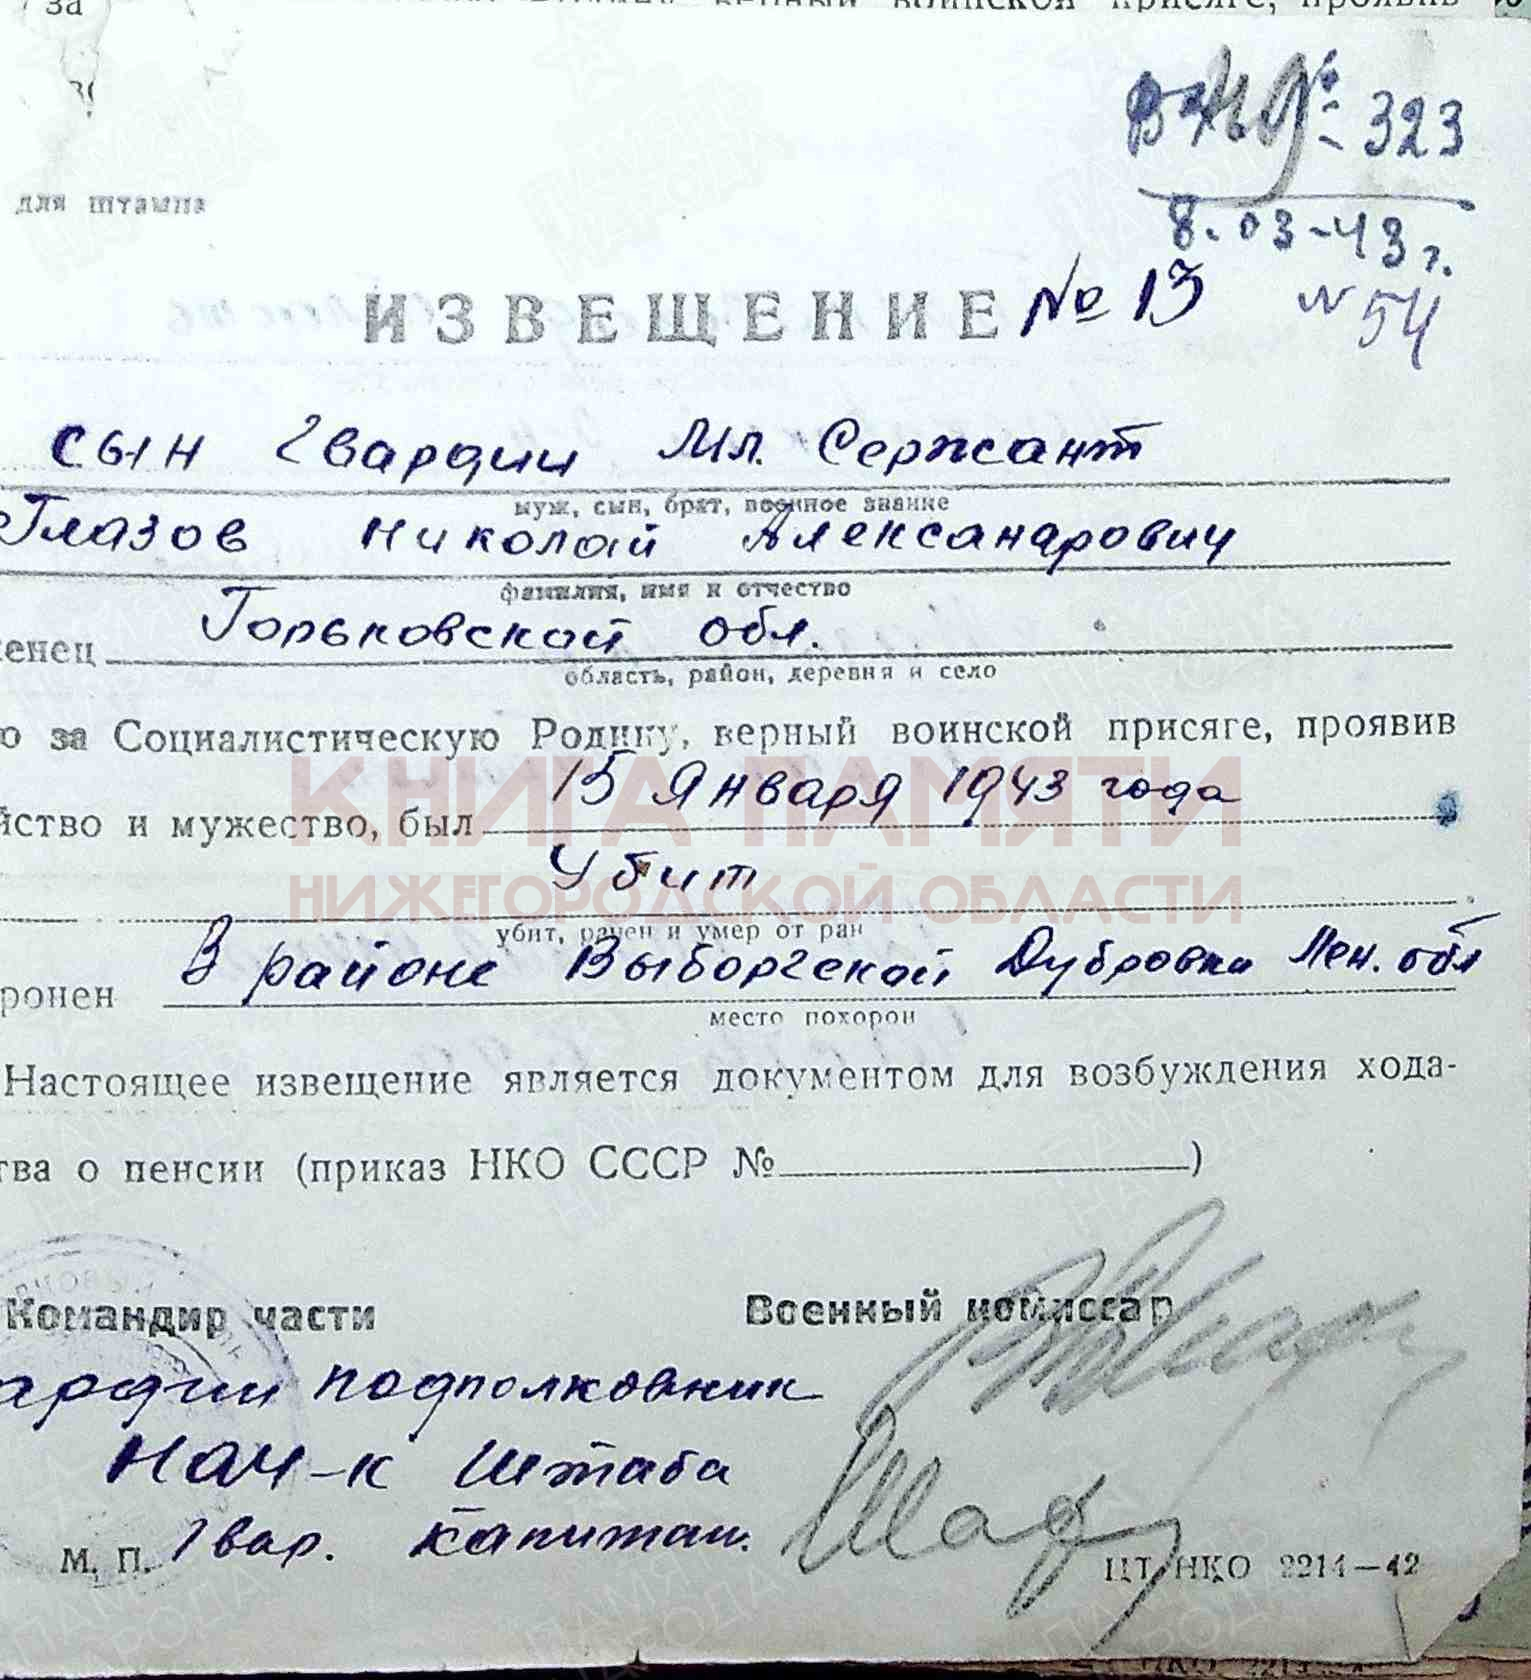 за верный воинской присяге, проявив
для штампа
Вх № 323
8.03-43 г.
ИЗВЕЩЕНИЕ № 13 N 54
сын Гвардии Мл. Сержант
муж, сын, брат, военное звание
Глазов Николай Александрович
фамилия, имя и отчество
енец Горьковской обл.
область, район, деревня и село
о за Социалистическую Родину, верный воинской присяге, проявив
15 Января 1943 года
йство и мужество, был
КНИГА ПАМЯТИ
Убит
НИЖЕГОРОДСКОЙ ОБЛАСТИ
убит, ранен и умер от ран
ронен В районе Выборгской Дубровки Лен. обл
место похорон
Настоящее извещение является документом для возбуждения хода-
тва о пенсии (приказ НКО СССР № )
Командир части Военный комиссар
ардии подполковник
Нач-к Штаба
М. П. Гвар. капитан.
ЦТ НКО 2214—42